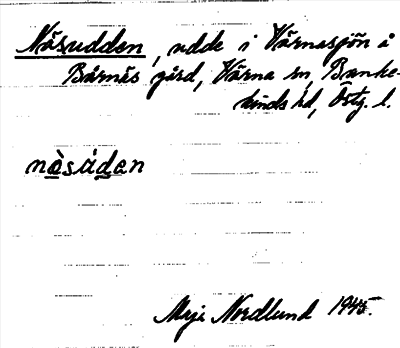 Näsudden, udde i Värnasjön å
Bårnäs gård, Värna sn, Banke-
kinds hd, Östg. l.
nä̀súden
Maja Nordlund 1945.